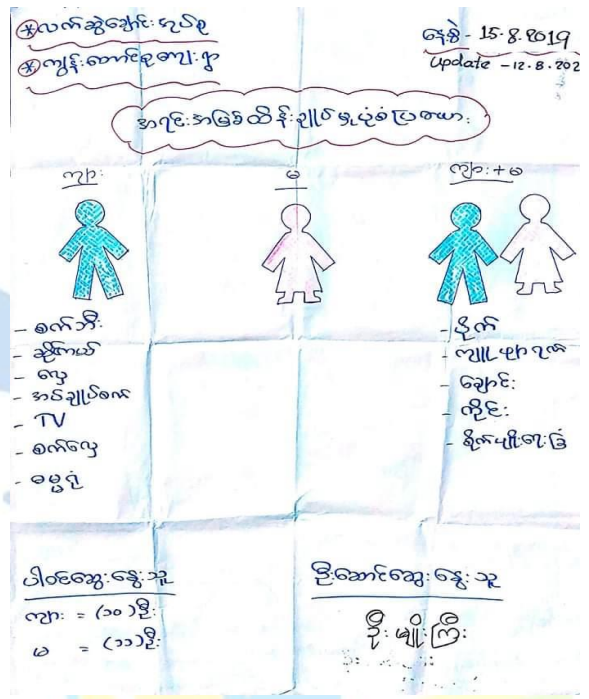 လက်ဆွဲချောင်းအုပ်စု
ကျွန်းတောင်စုကျေးရွာ
နေ့စွဲ - 15.8.2019
Update - 12.8.202
အရင်းအမြစ်ထိန်းချုပ်မှုပုံစံပြဇယား
ကျား
မ
ကျား + မ
- စက်ဘီး
- ဆိုင်ကယ်
- လှေ
- အပ်ချုပ်စက်
- TV
- စက်လှေ
- ဓမ္မာရုံ
- စိုက်
- ချောင်း
- ကိုင်း
- စိုက်ပျိုးရေးခြံ
ပါဝင်ဆွေးနွေးသူ
ကျား = (၁၀) ဦး
မ = (၁၁) ဦး
ဦးဆောင်ဆွေးနွေးသူ
ဦးမျိုးကြီး